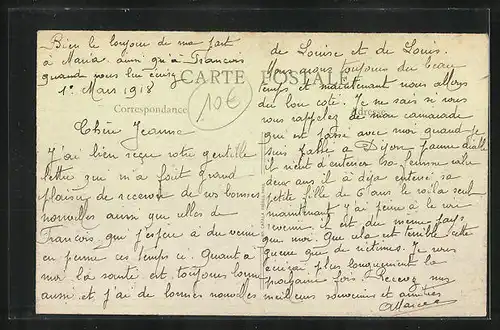 Bien le bonjour de ma part
à Maria ainsi qu'à Francois
quand vous lui ecrirez
1er Mars 1918
CARTE POSTALE
Correspondance
Adresse
10€
Chère Jeanne
J'ai bien reçu votre gentille
lettre qui m'a fait grand
plaisir de recevoir de vos bonnes
nouvelles aussi que celles de
Francois, qui j'espère a du venir
en perme ces temps ci. Quant à
moi la santé est toujours bonne
aussi et j'ai de bonnes nouvelles
de Louise et de Louis.
Nous avons toujours du beau
temps et maintenant nous allons
du bon coté. Je ne sais si vous
vous rappelez de mon camarade
qui est passé avec moi quand je
suis passé à Dijon, pauvre diable
il vient d'enterrer sa femme voila
deux ans il a déja enterré sa
petite fille de 6 ans le voila seul
maintenant j'ai peine à le voir
revenir il est du meme pays
que moi. Que cela est terrible cette
guerre que de victimes. Je vous
écrirai plus longuement la
prochaine fois. Recevez mes
meilleurs souvenirs et amitiés